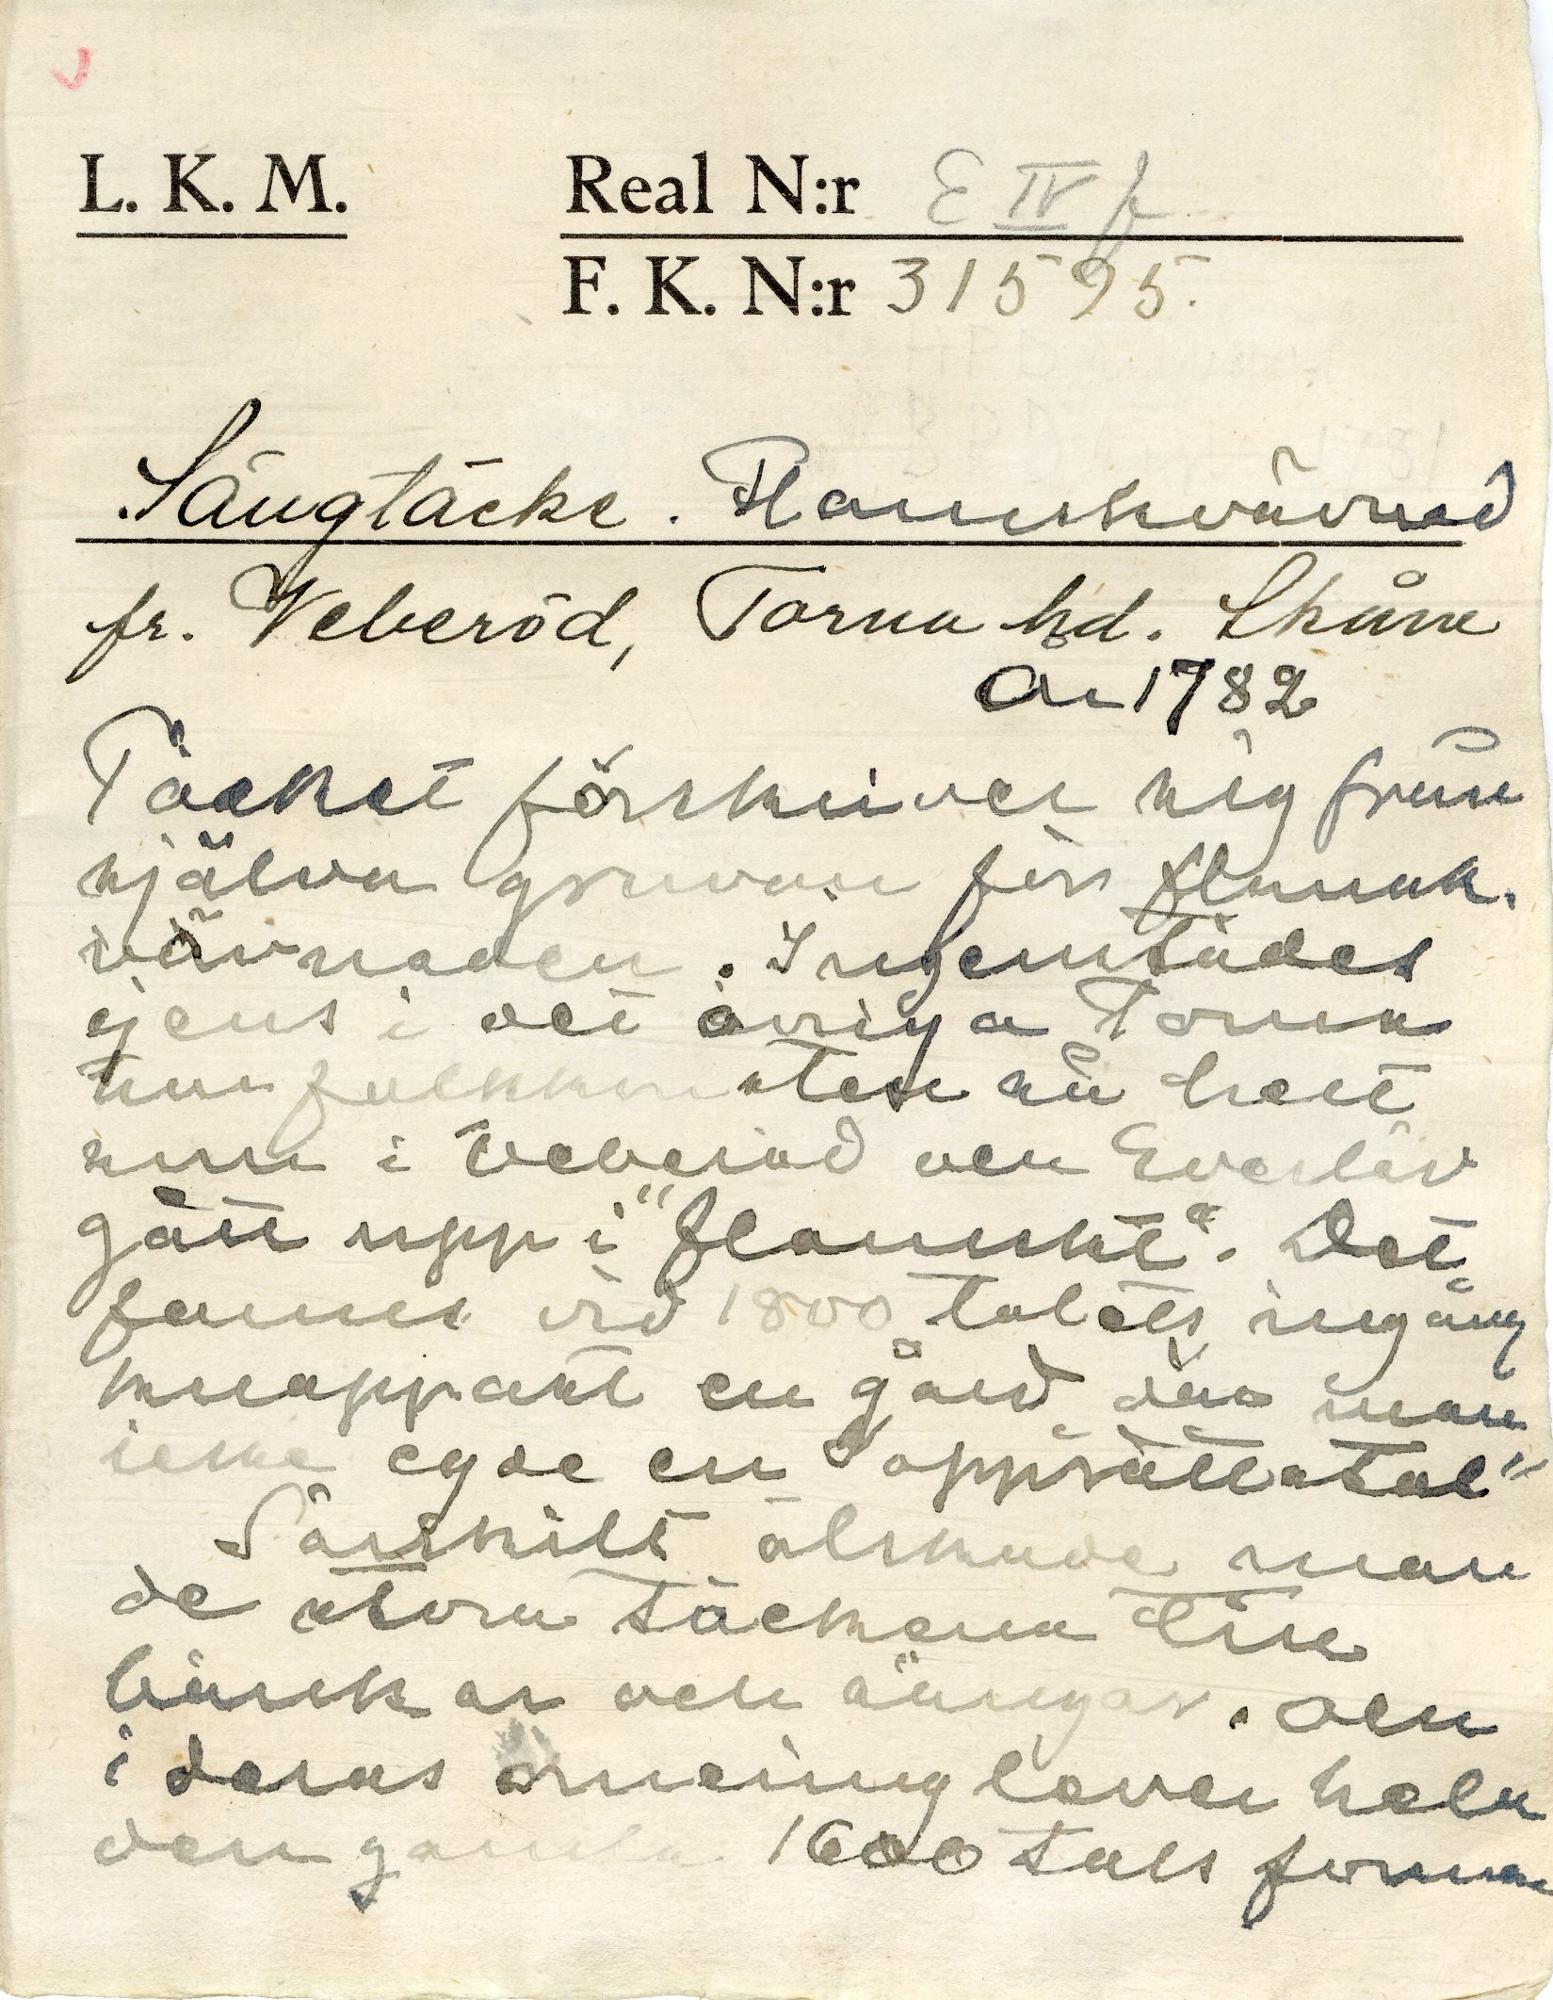 L. K. M.
Real N:r E IV f
F. K. N:r 31595.
Sängtäcke. Flamskvävnad
fr. Veberöd, Torna hd. Skåne
År 1782
Täcket förskriver sig från
själva gruvan för flamsk.
vävnaden. Ingenstädes
ejens i det övriga Torna
har folkkonsten så helt
som i Veberöd och Everlöv
gått upp i "flamskt". Det
fanns vid 1800 talets ingång
knappast en gård där man
icke egde en "opprättestol"
Särskilt älskade man
de stora täckena till
bänkar och sängar. och
i deras ornering lever hela
den gamla 1600 tals forman